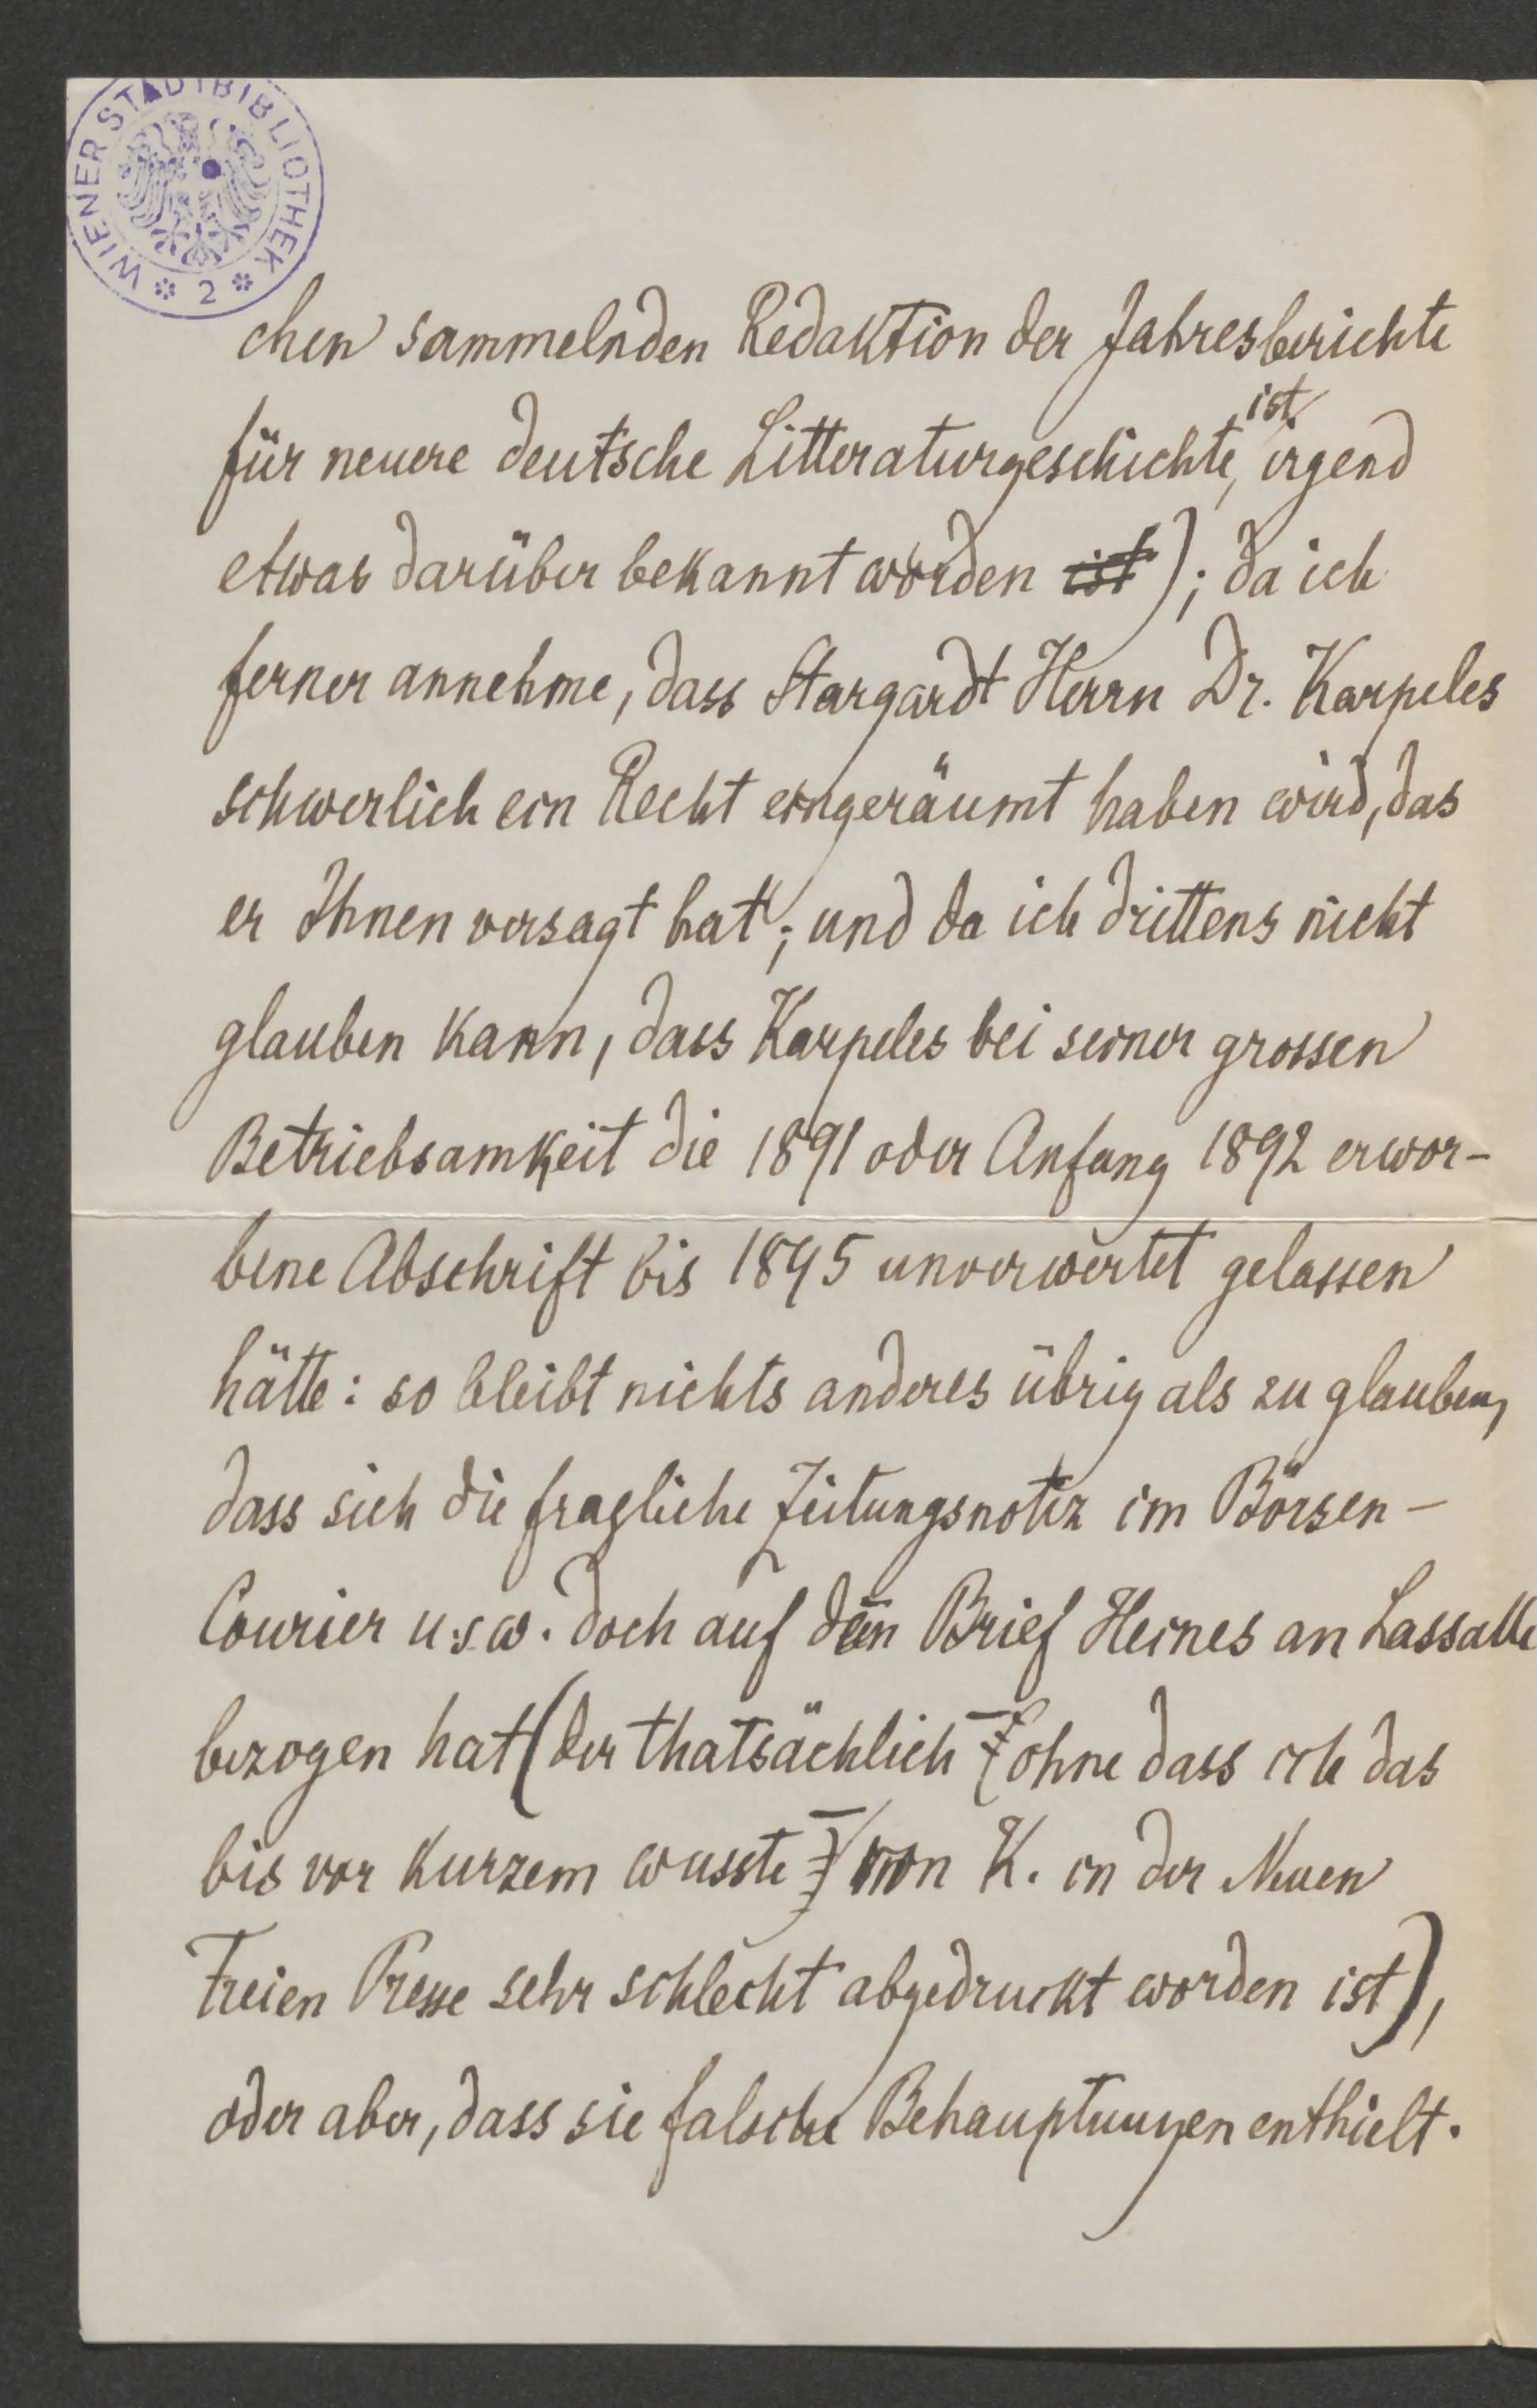 WIENER STADTBIBLIOTHEK * 2 *
chen sammelnden Redaktion der Jahresberichte
ist
für neuere deutsche Litteraturgeschichte, irgend
etwas darüber bekannt worden ist); da ich
ferner annehme, dass Stargardt Herrn Dr. Karpeles
schwerlich ein Recht eingeräumt haben wird, das
er Ihnen versagt hat; und da ich drittens nicht
glauben kann, dass Karpeles bei seiner grossen
Betriebsamkeit die 1891 oder Anfang 1892 erwor-
bene Abschrift bis 1895 unverwertet gelassen
hätte: so bleibt nichts anderes übrig als zu glauben,
dass sich die fragliche Zeitungsnotiz im Börsen-
Courier u.s.w. doch auf den Brief Heines an Lassalle
bezogen hat (der thatsächlich – ohne dass ich das
bis vor kurzem wusste – von K. in der Neuen
Freien Presse sehr schlecht abgedruckt worden ist),
oder aber, dass sie falsche Behauptungen enthielt.